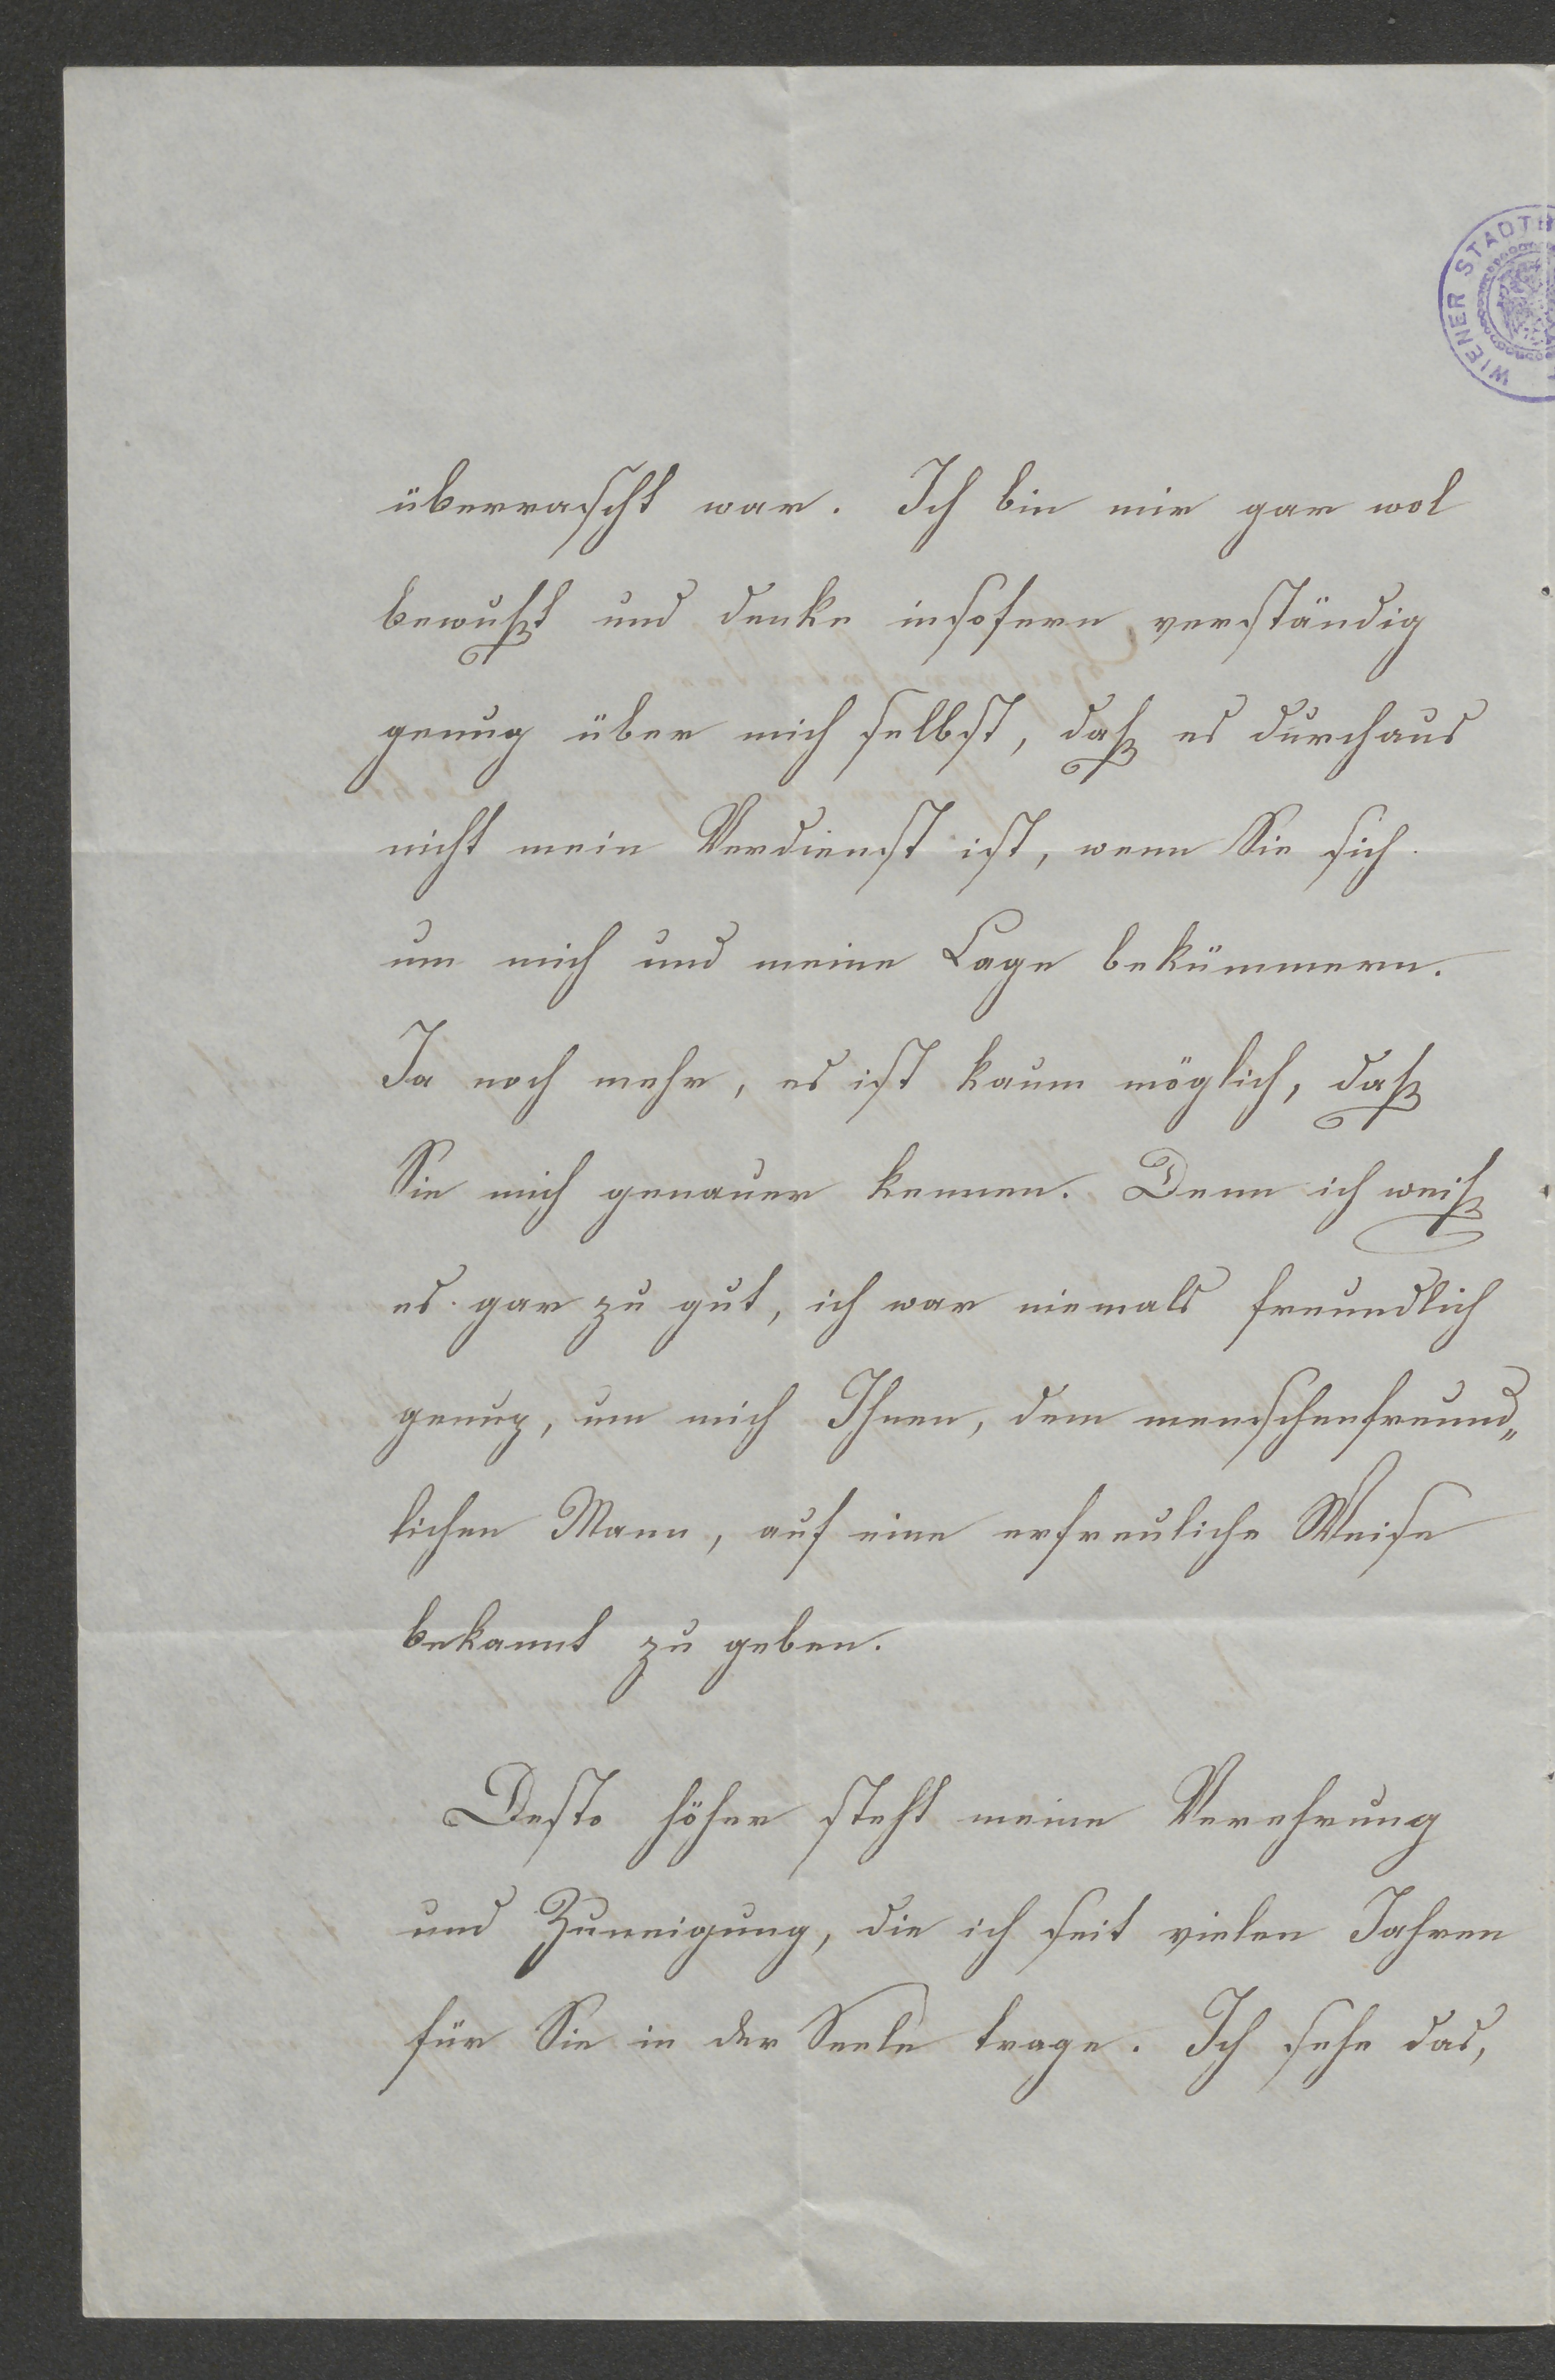 WIENER STADTB
überrascht war. Ich bin mir gar wol
bewußt und denke insofern verständig
genug über mich selbst, daß es durchaus
nicht mein Verdienst ist, wenn Sie sich
um mich und meine Lage bekümmern.
Ja noch mehr, es ist kaum möglich, daß
Sie mich genauer kennen. Denn ich weiß
es gar zu gut, ich war niemals freundlich
genug, um mich Ihnen, dem menschenfreund„
lichen Mann, auf eine erfreuliche Weise
bekannt zu geben.
Desto höher steht meine Verehrung
und Zuneigung, die ich seit vielen Jahren
für Sie in der Seele trage. Ich sehe das,